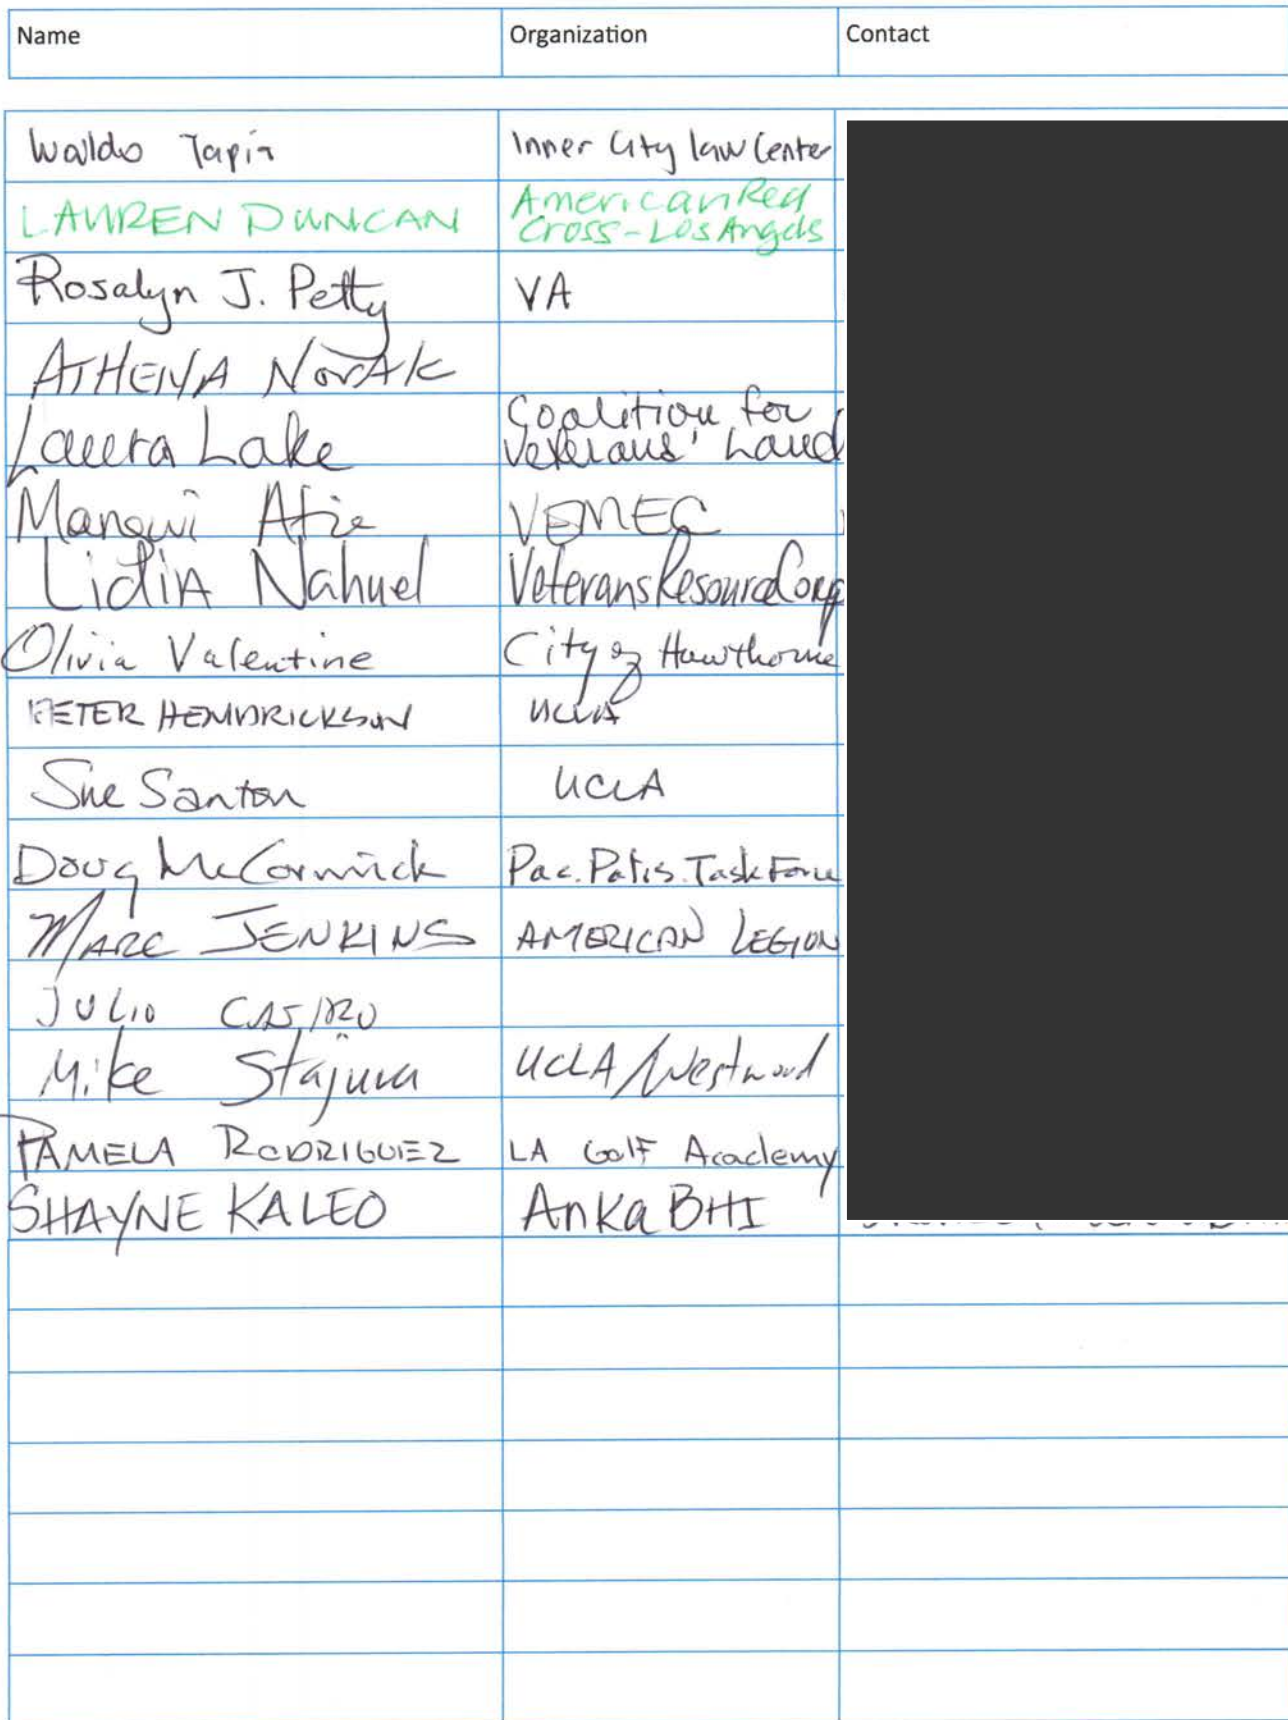 Name Organization Contact
Waldo Tapia Inner City law Center
LAUREN DUNCAN American Red
Cross-Los Angels
Rosalyn J. Petty VA
ATHENA NOVAK
Laura Lake Coalition for
Veterans' Land
Lidia Nahuel Veterans Resource Corp
Olivia Valentine City of Hawthorne
PETER HENDRICKSON UCLA
Sue Santon UCLA
Doug McCormick Pac. Palis. Task Force
MARC JENKINS AMERICAN LEGION
JULIO CASTRO
Mike Stajura UCLA/Westwood
PAMELA RODRIGUEZ LA Golf Academy
SHAYNE KALEO Anka BHI